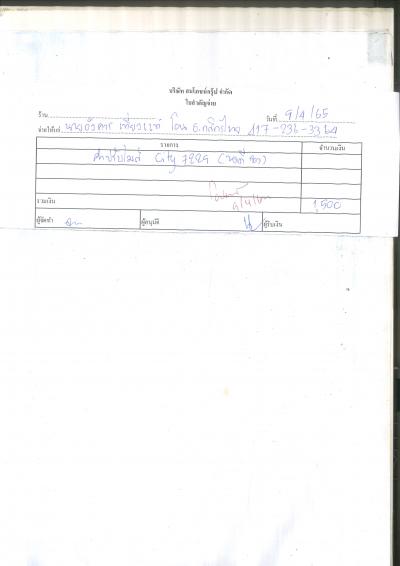 บริษัท สมโภชน์กรุ๊ป จำกัด
ใบสำคัญจ่าย
ร้าน วันที่ 9/4/65
จ่ายให้แก่ นายอังคาร เที่ยงแท้ โอน ธ.กสิกรไทย 117-236-3364
รายการ จำนวนเงิน
City 7229
รวมเงิน 1,500
ผู้จัดทำ ผู้อนุมัติ ผู้รับเงิน